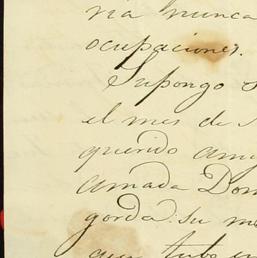 ria nunca
ocupaciones.
Supongo
el mes de
querido
amada
gorda su
que tube